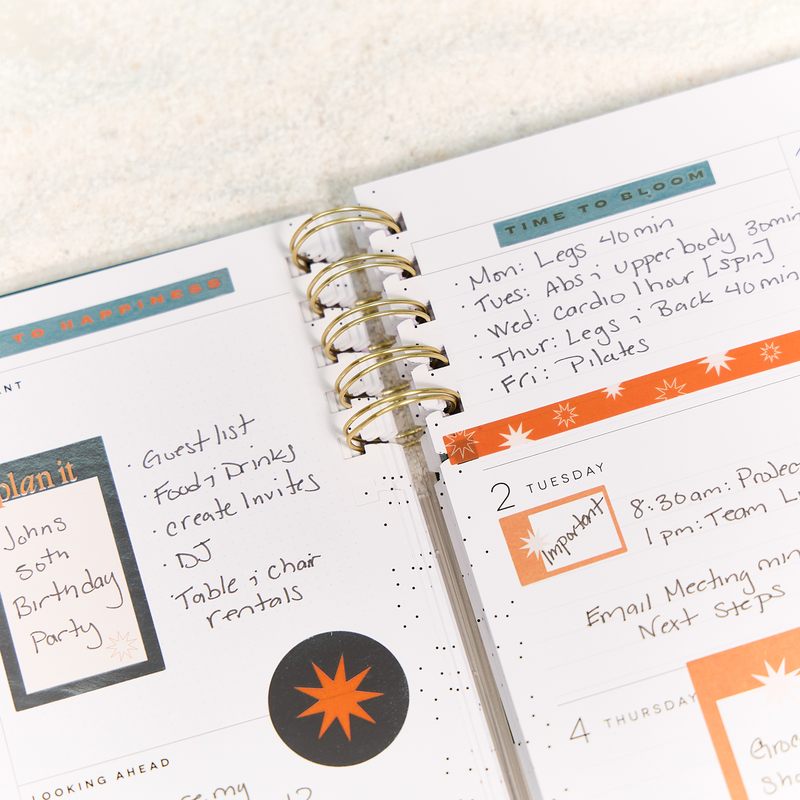 TO HAPPINESS
plan it
Johns
50th
Birthday
Party
· Guest list
· Food & Drinks
· create Invites
· DJ
· Table & Chair
rentals
LOOKING AHEAD
my
TIME TO BLOOM
· Mon: Legs 40 min
· Tues: Abs & upper body 30min
· Wed: Cardio 1 hour [spin]
· Thur: Legs & Back 40 min
· Fri: Pilates
2 TUESDAY
Important
8:30am:
1pm: Team
Email Meeting
Next Steps
4 THURSDAY